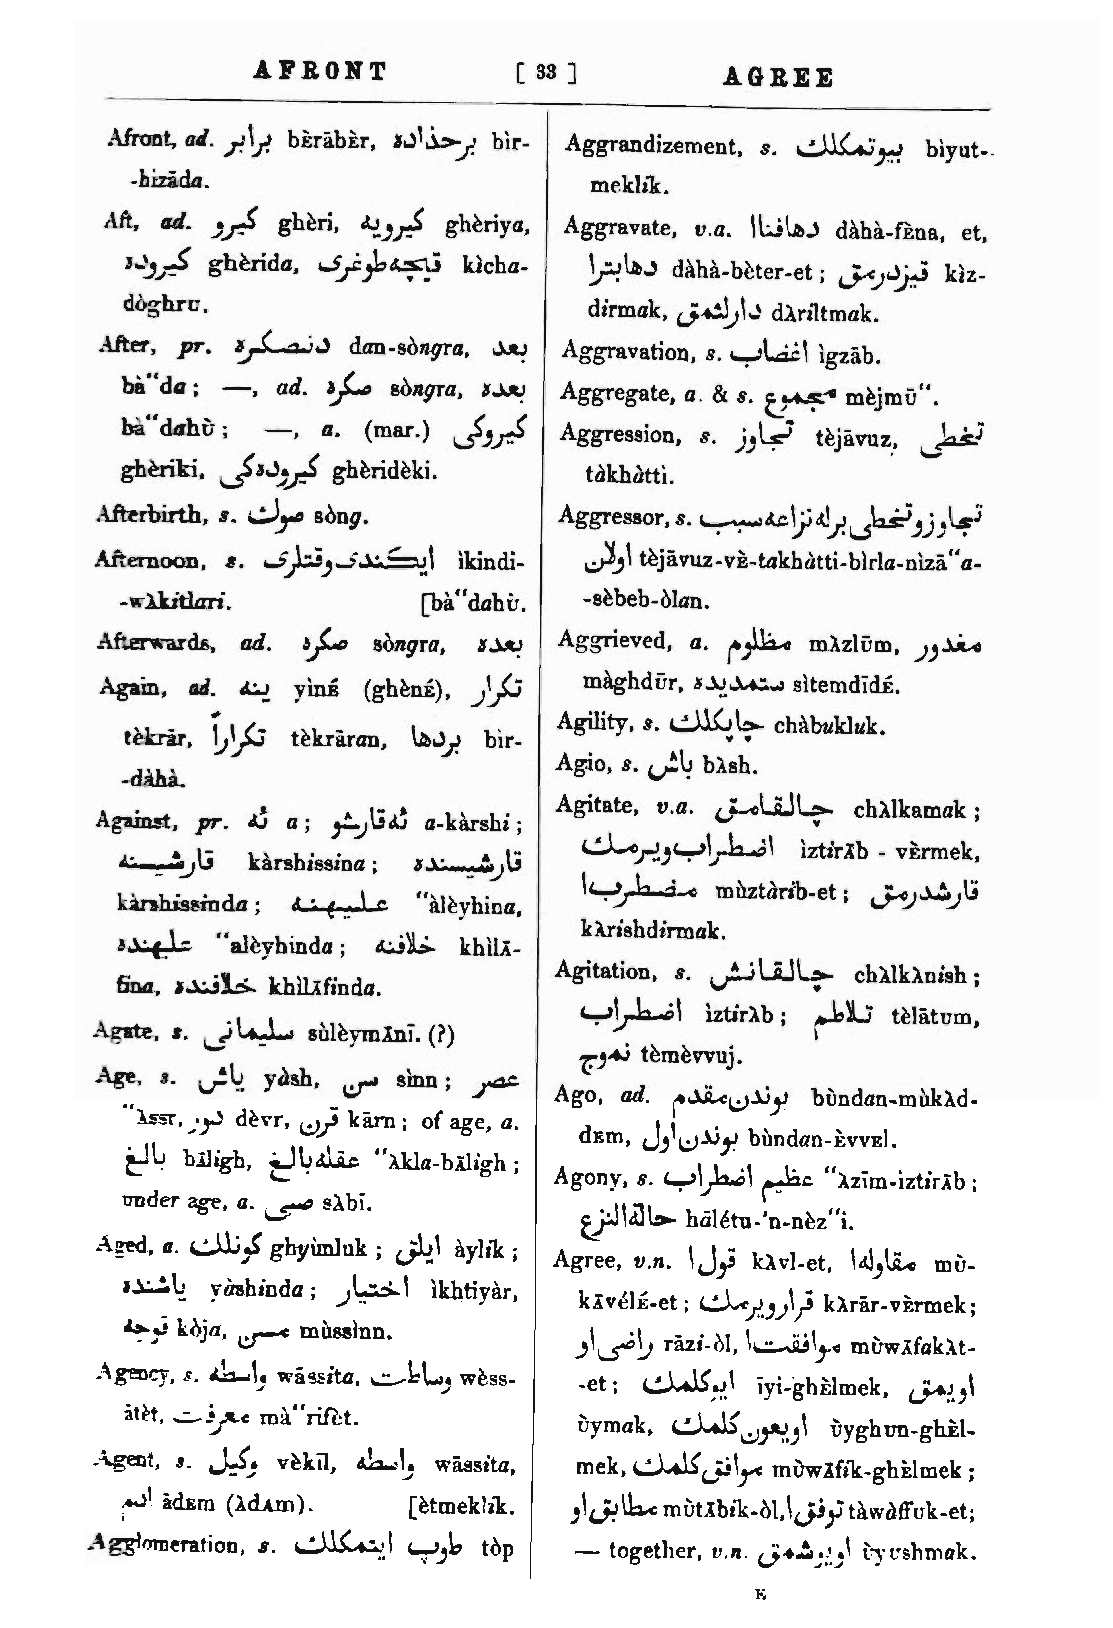 AFRONT [ 33 ] AGREE
Afront, ad. برابر bÈrābÈr, برحذاده bìr-
-hizāda.
Aft, ad. كيرو ghèri, كيرويه ghèriya,
كيروده ghèrida, قيچه‌طوغرى kìcha-
dòghru.
After, pr. دنصكره dan-sòngra, بعد
bà“da; —, ad. صكره sòngra, بعده
bà“dahù; —, a. (mar.) كيروكى
ghèriki, كيروده‌كى ghèridèki.
Afterbirth, s. صوك sòng.
Afternoon, s. ايكندى‌وقتلرى ìkindi-
-wλkitlari. [bà“dahù.
Afterwards, ad. صكره sòngra, بعده
Again, ad. ينه yìnÉ (ghènÉ), تكرار
tèkrār, تكراراً tèkrāran, بردها bìr-
-dàhà.
Against, pr. ئه a; ئه‌قارشو a-kàrshi;
قارشيسينه kàrshissina; قارشيسنده
kàrshissinda; عليهنه “àlèyhina,
عليهنده “alèyhinda; خلافنه khìlλ-
fina, خلافنده khìlλfinda.
Agate, s. سليمانى sùlèymλnī. (?)
Age, s. ياش yàsh, سن sìnn; عصر
“λssr, دور dèvr, قرن kārn; of age, a.
بالغ bāligh, عقله‌بالغ “λkla-bāligh;
under age, a. صبى sλbī.
Aged, a. كونلك ghyùnluk; ايلق àylìk;
ياشنده yàshinda; اختيار ìkhtiyàr,
قوجه kòja, مسن mùssìnn.
Agency, s. واسطه wāssita, وساطت wèss-
ātèt, معرفت mà“rifèt.
Agent, s. وكيل vèkīl, واسطه wāssita,
ادم ādEm (λdAm). [ètmeklìk.
Agglomeration, s. طوپ ايتمكلك tòp
Aggrandizement, s. بيوتمكلك bìyut-
meklìk.
Aggravate, v.a. دهافناا dàhà-fÈna, et,
دهابترا dàhà-bèter-et; قيزدرمق kìz-
dirmak, دارلتمق dλriltmak.
Aggravation, s. اغضاب ìgzāb.
Aggregate, a. & s. مجموع mèjmū“.
Aggression, s. تجاوز tèjāvuz, تخطى
tàkhàttì.
Aggressor, s. تجاوزوتخطى‌برله‌نزاعه‌سبب
اولان tèjāvuz-vÈ-takhàtti-bìrla-nìzā“a-
-sèbeb-òlan.
Aggrieved, a. مظلوم mλzlūm, مغدور
màghdūr, ستمديده sìtemdīdÉ.
Agility, s. چاپكلك chàbukluk.
Agio, s. باش bλsh.
Agitate, v.a. چالقامق chλlkamak;
اضطراب‌ويرمك ìztirλb - vÈrmek,
مضطرب‌ا mùztàrib-et; قارشدرمق
kλrishdirmak.
Agitation, s. چالقانش chλlkλnish;
اضطراب ìztirλb; تلاطم tèlātum,
تموج tèmèvvuj.
Ago, ad. بوندن‌مقدم bùndan-mùkλd-
dEm, بوندن‌اول bùndan-ÈvvEl.
Agony, s. عظيم اضطراب “λzīm-iztirλb;
حالة‌النزع hālétu-’n-nèz“i.
Agree, v.n. قول‌ا kλvl-et, مقاوله‌ا mù-
kλvélÉ-et; قرارويرمك kλrār-vÈrmek;
راضى‌او rāzi-òl, موافقت‌ا mùwλfakλt-
-et; ايوكلمك īyi-ghÈlmek, اويمق
ùymak, اويغون‌كلمك ùyghun-ghÈl-
mek, موافق‌كلمك mùwλfik-ghÈlmek;
مطابق‌او mùtλbik-òl, توفق‌ا tàwàffuk-et;
— together, v.n. اويوشمق ùyushmak.
E